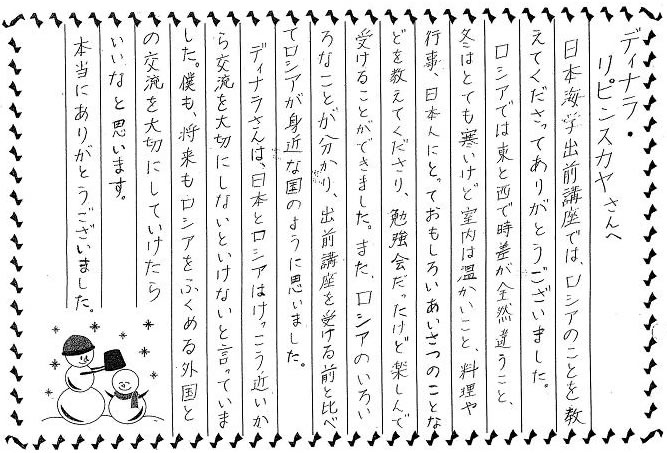 ディナラ・
リピンスカヤさんへ
日本海学出前講座では、ロシアのことを教
えてくださってありがとうございました。
ロシアでは東と西で時差が全然違うこと、
冬はとても寒いけど室内は温かいこと、料理や
行事、日本人にとっておもしろいあいさつのことな
どを教えてくださり、勉強会だったけど楽しんで
受けることができました。また、ロシアのいろい
ろなことが分かり、出前講座を受ける前と比べ
てロシアが身近な国のように思いました。
ディナラさんは、日本とロシアはけっこう近いか
ら交流を大切にしないといけないと言っていま
した。僕も、将来もロシアをふくめる外国と
の交流を大切にしていけたら
いいなと思います。
本当にありがとうございました。